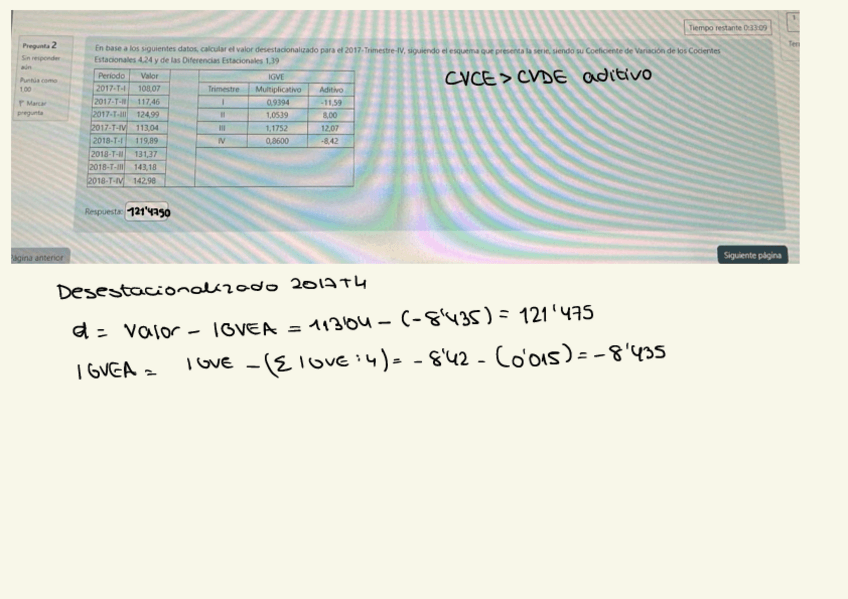 Tiempo restante 0:33:09
Pregunta 2
Sin responder aún
Puntúa como 1,00
Marcar pregunta
En base a los siguientes datos, calcular el valor desestacionalizado para el 2017-Trimestre-IV, siguiendo el esquema que presenta la serie, siendo su Coeficiente de Variación de los Cocientes
Estacionales 4,24 y de las Diferencias Estacionales 1,39
CVCE > CVDE aditivo
Periodo Valor IGVE
Trimestre Multiplicativo Aditivo
2017-T-I 108,07 I 0,9394 -11,59
2017-T-II 117,46 II 1,0539 8,00
2017-T-III 124,99 III 1,1752 12,07
2017-T-IV 113,04 IV 0,8600 -8,42
2018-T-I 119,89
2018-T-II 131,37
2018-T-III 143,18
2018-T-IV 142,98
Respuesta: 121'4750
Siguiente página
ágina anterior
Desestacionalizado 2017T4
d = Valor - IGVEA = 113'04 - (-8'435) = 121'475
IGVEA = IGVE - (Σ IGVE : 4) = - 8'42 - (0'015) = - 8'435